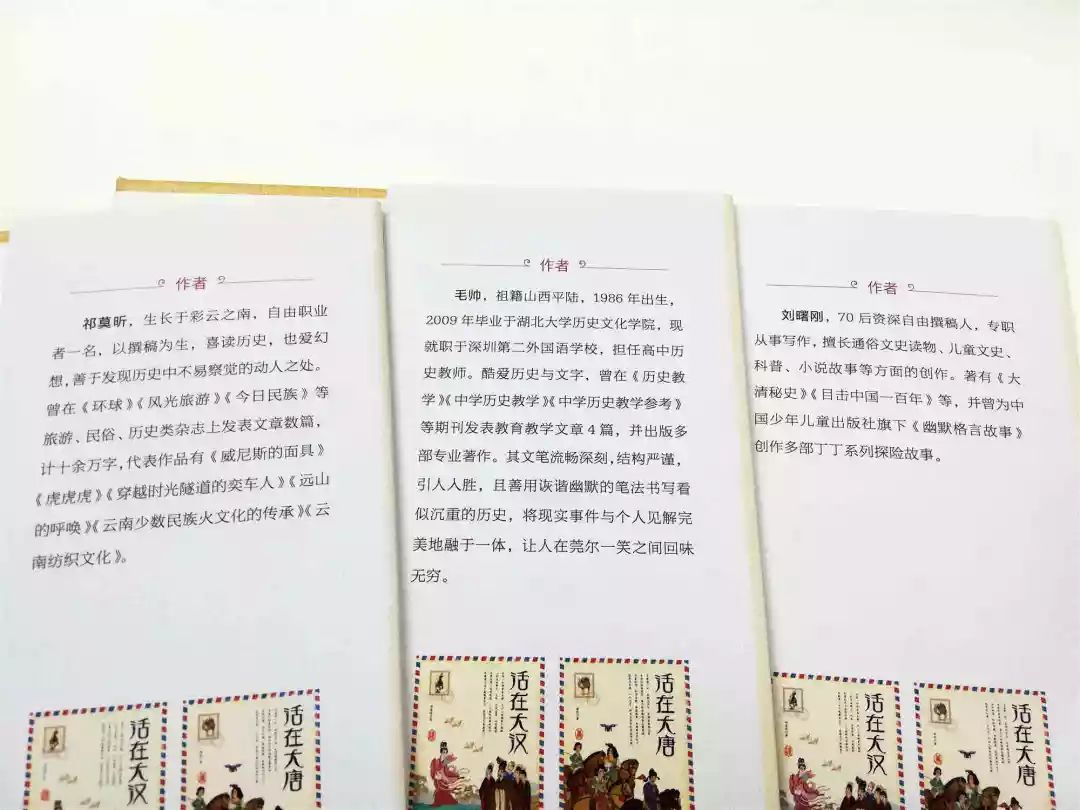 作者
祁莫昕，生长于彩云之南，自由职业
者一名，以撰稿为生，喜读历史，也爱幻
想，善于发现历史中不易察觉的动人之处。
曾在《环球》《风光旅游》《今日民族》等
旅游、民俗、历史类杂志上发表文章数篇，
计十余万字，代表作品有《威尼斯的面具》
《虎虎虎》《穿越时光隧道的奕车人》《远山
的呼唤》《云南少数民族火文化的传承》《云
南纺织文化》。
活在大汉
活在大唐
作者
毛帅，祖籍山西平陆，1986 年出生，
2009 年毕业于湖北大学历史文化学院，现
就职于深圳第二外国语学校，担任高中历
史教师。酷爱历史与文字，曾在《历史教
学》《中学历史教学》《中学历史教学参考》
等期刊发表教育教学文章 4 篇，并出版多
部专业著作。其文笔流畅深刻，结构严谨，
引人入胜，且善用诙谐幽默的笔法书写看
似沉重的历史，将现实事件与个人见解完
美地融于一体，让人在莞尔一笑之间回味
无穷。
活在大汉
活在大唐
作者
刘曙刚，70 后资深自由撰稿人，专职
从事写作，擅长通俗文史读物、儿童文史、
科普、小说故事等方面的创作。著有《大
清秘史》《目击中国一百年》等，并曾为中
国少年儿童出版社旗下《幽默格言故事》
创作多部丁丁系列探险故事。
活在大汉
活在大唐